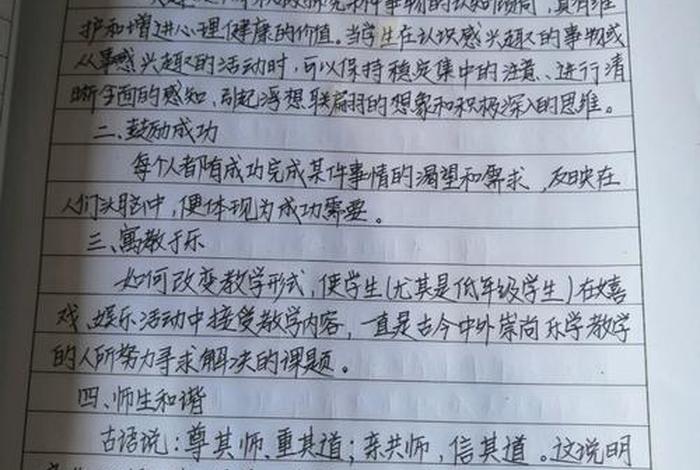 探究某种事物的认知倾向,具有维
护和增进心理健康的价值。当学生在认识感兴趣的事物或
从事感兴趣的活动时,可以保持稳定集中的注意、进行清
晰全面的感知、引起浮想联翩的想象和积极深入的思维。
二、鼓励成功
每个人都有成功完成某件事情的渴望和需求,反映在
人们头脑中,便体现为成功需要。
三、寓教于乐
如何改变教学形式,使学生(尤其是低年级学生)在嬉
戏、娱乐活动中接受教学内容,一直是古今中外崇尚乐学教学
的人所努力寻求解决的课题。
四、师生和谐
古语说:尊其师、重其道;亲其师,信其道。这说明